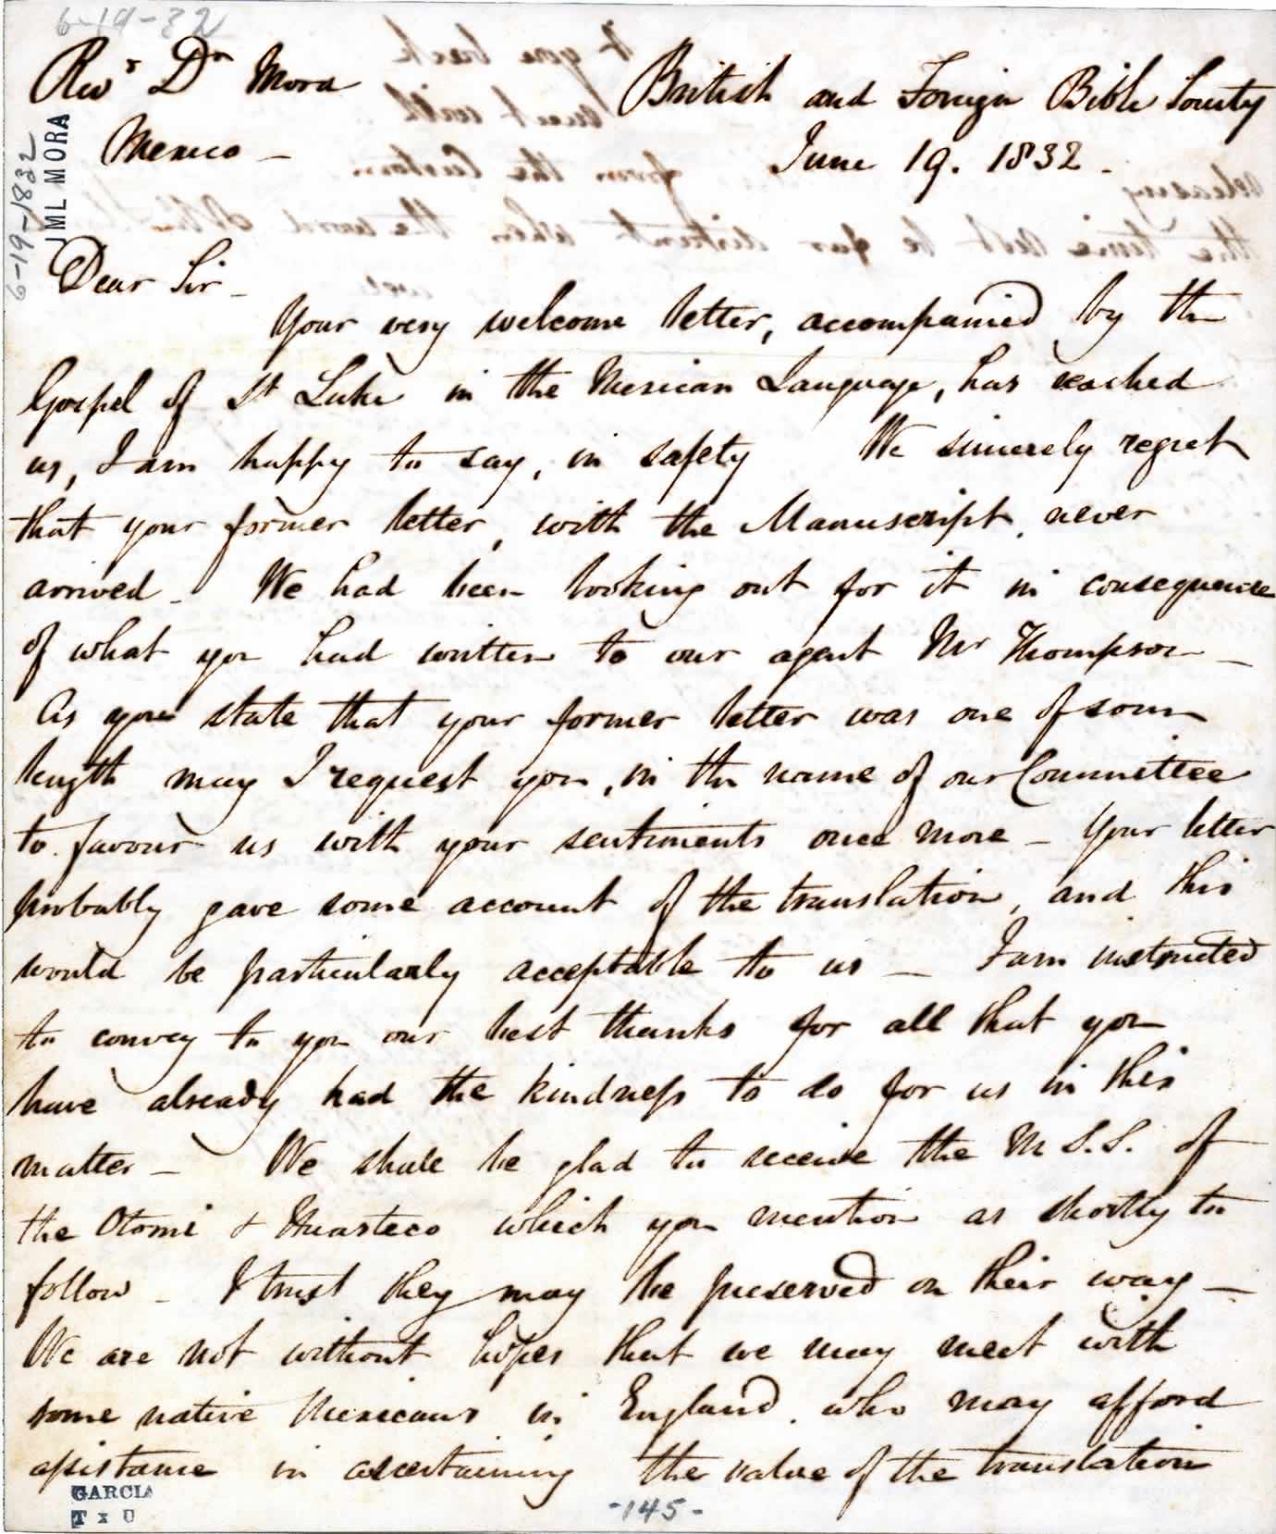 6-19-32
Revd Dr Mora
British and Foreign Bible Society
Mexico -
June 19. 1832.
6-19-1832
JML MORA
Dear Sir -
Your very welcome letter, accompanied by the
Gospel of St Luke in the Mexican Language, has reached
us, I am happy to say, in safety We sincerely regret
that your former letter, with the Manuscript, never
arrived - We had been looking out for it in consequence
of what you had written to our agent Mr Thompson -
As you state that your former letter was one of some
length may I request you, in the name of our Committee
to favour us with your sentiments once more - Your letter
probably gave some account of the translation, and this
would be particularly acceptable to us - I am instructed
to convey to you our best thanks for all that you
have already had the kindness to do for us in this
matter - We shall be glad to receive the M.S.S. of
the Otomi & Huasteco which you mention as shortly to
follow - I trust they may be preserved on their way -
We are not without hopes that we may meet with
some native Mexicans in England, who may afford
assistance in ascertaining the value of the translation
GARCIA
T x U
-145-